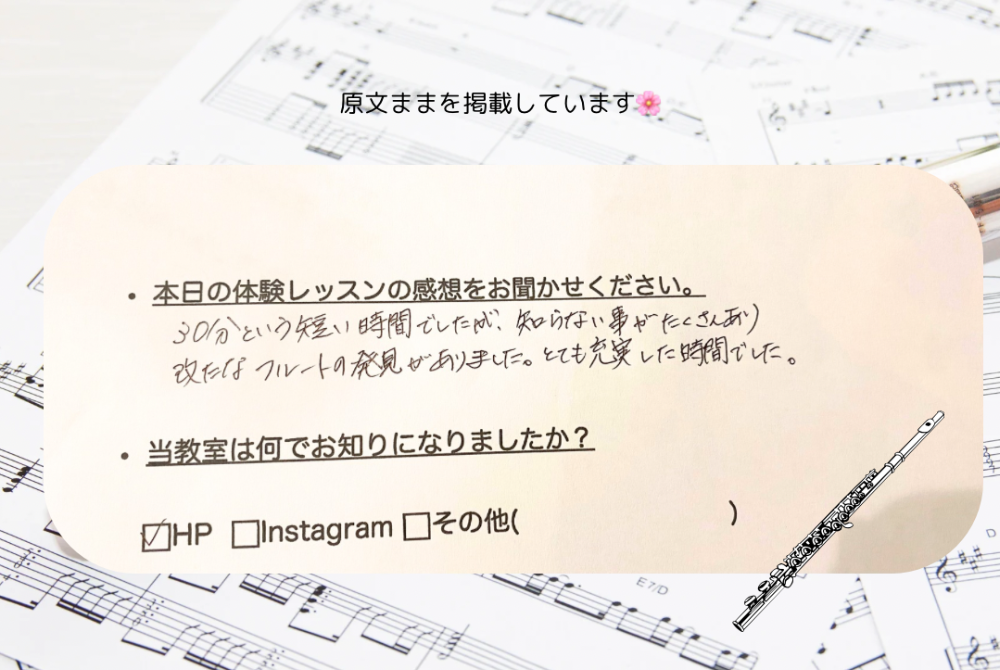 原文ままを掲載しています🌸
・本日の体験レッスンの感想をお聞かせください。
30分という短い時間でしたが、知らない事がたくさんあり
改たなフルートの発見がありました。とても充実した時間でした。
・当教室は何でお知りになりましたか？
☑HP □Instagram □その他( )
E7/D